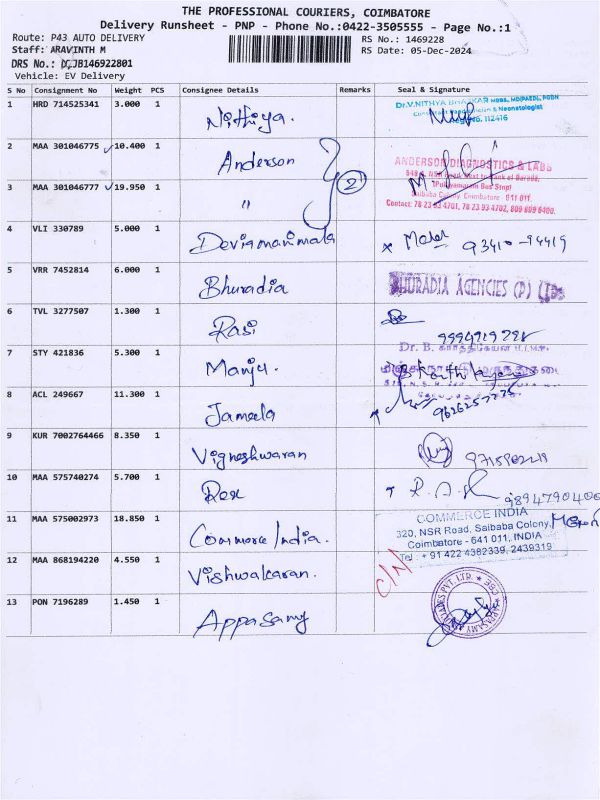 THE PROFESSIONAL COURIERS, COIMBATORE
Delivery Runsheet - PNP - Phone No.:0422-3505555 - Page No.:1
Route: P43 AUTO DELIVERY
RS No.: 1469228
Staff: ARAVINTH M
RS Date: 05-Dec-2024
DRS No.: DCJB146922801
Vehicle: EV Delivery
S No Consignment No Weight PCS Consignee Details Remarks Seal & Signature
1 HRD 714525341 3.000 1 Nithiya.
Dr.V.NITHYA BHASKAR MBBS., MD(PAED)., PGDN
Consultant Paediatrician & Neonatologist
Reg No. 112416
2 MAA 301046775 10.400 1 Anderson
3 MAA 301046777 19.950 1 " 2
ANDERSON DIAGNOSTICS & LABS
Saibaba Colony, Coimbatore - 641 011.
Contact: 78 23 93 4701, 78 23 93 4702, 809 809 6400.
4 VLI 330789 5.000 1 Deviamanimala 93410-94419
5 VRR 7452814 6.000 1 Bhuradia
BHURADIA AGENCIES (P) LTD
6 TVL 3277507 1.300 1 Rasi
7 STY 421836 5.300 1 Manju.
Dr. B. கார்த்திகேயன்
8 ACL 249667 11.300 1 Jameela 9626257775
9 KUR 7002764466 8.350 1 Vigneshwaran
10 MAA 575740274 5.700 1 R.A.K 9894790400
11 MAA 575002973 18.850 1 Commerce India.
COMMERCE INDIA
320, NSR Road, Saibaba Colony,
Coimbatore - 641 011, INDIA
Tel : + 91 422 4382339, 2439319
12 MAA 868194220 4.550 1 Vishwakaran. C/N
13 PON 7196289 1.450 1 Appasamy